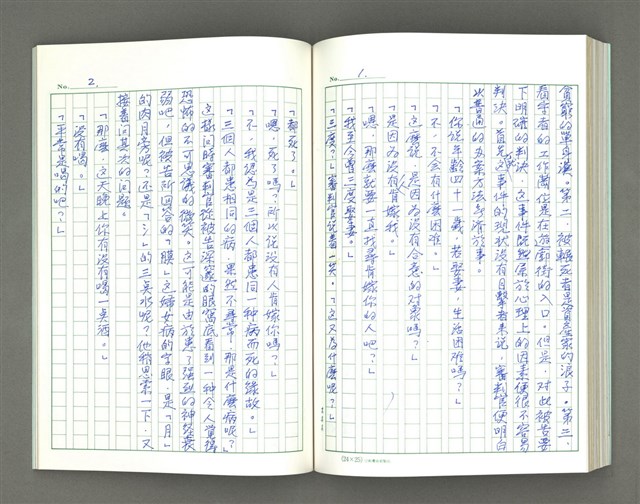 No. 1.
貧窮的單身漢。第二、被輾死者是資產家的浪子。第三、
看守者的工作崗位是在遊廓街的入口。但是，對此被告要
下明確的判決，這事件既然屬於心理上的因素便很不容易
判決。首先這事件的現狀沒有目擊者來說，審判官便明白
以普通的辦案方法無濟於事。
「你說年齡四十一歲，若娶妻，生活困難嗎？」
「不，不會有什麼困難。」
「這麼說，是因為沒有合意的對象嗎？」
「是因為沒有人肯嫁我。」
「嗯，那麼就要一直找尋肯嫁你的人吧？」
「我至今曾三度娶妻。」
「三度？」審判官說着一笑。「這又為什麼呢？」
(24×25)
No. 2.
「都死了。」
「嗯，死了嗎？所以說沒有人肯嫁你嗎？」
「不，我認為是三個人都患同一種病而死的緣故。」
「三個人都患相同的病，果然不尋常，那是什麼病呢？」
這樣問時審判官從被告深邃的眼窩底看到一種令人覺得
恐怖的不可思議的微笑。這可能是由於患了強烈的神經衰
弱吧，但被告所回答的「膜」這婦女病的字眼，是「月」
的肉月旁呢？還是「氵」的三點水呢？他稍思索一下，又
接着問其次的問題。
「那麼，這天晚上你有沒有喝一點酒。」
「沒有喝。」
「平常是喝的吧？」